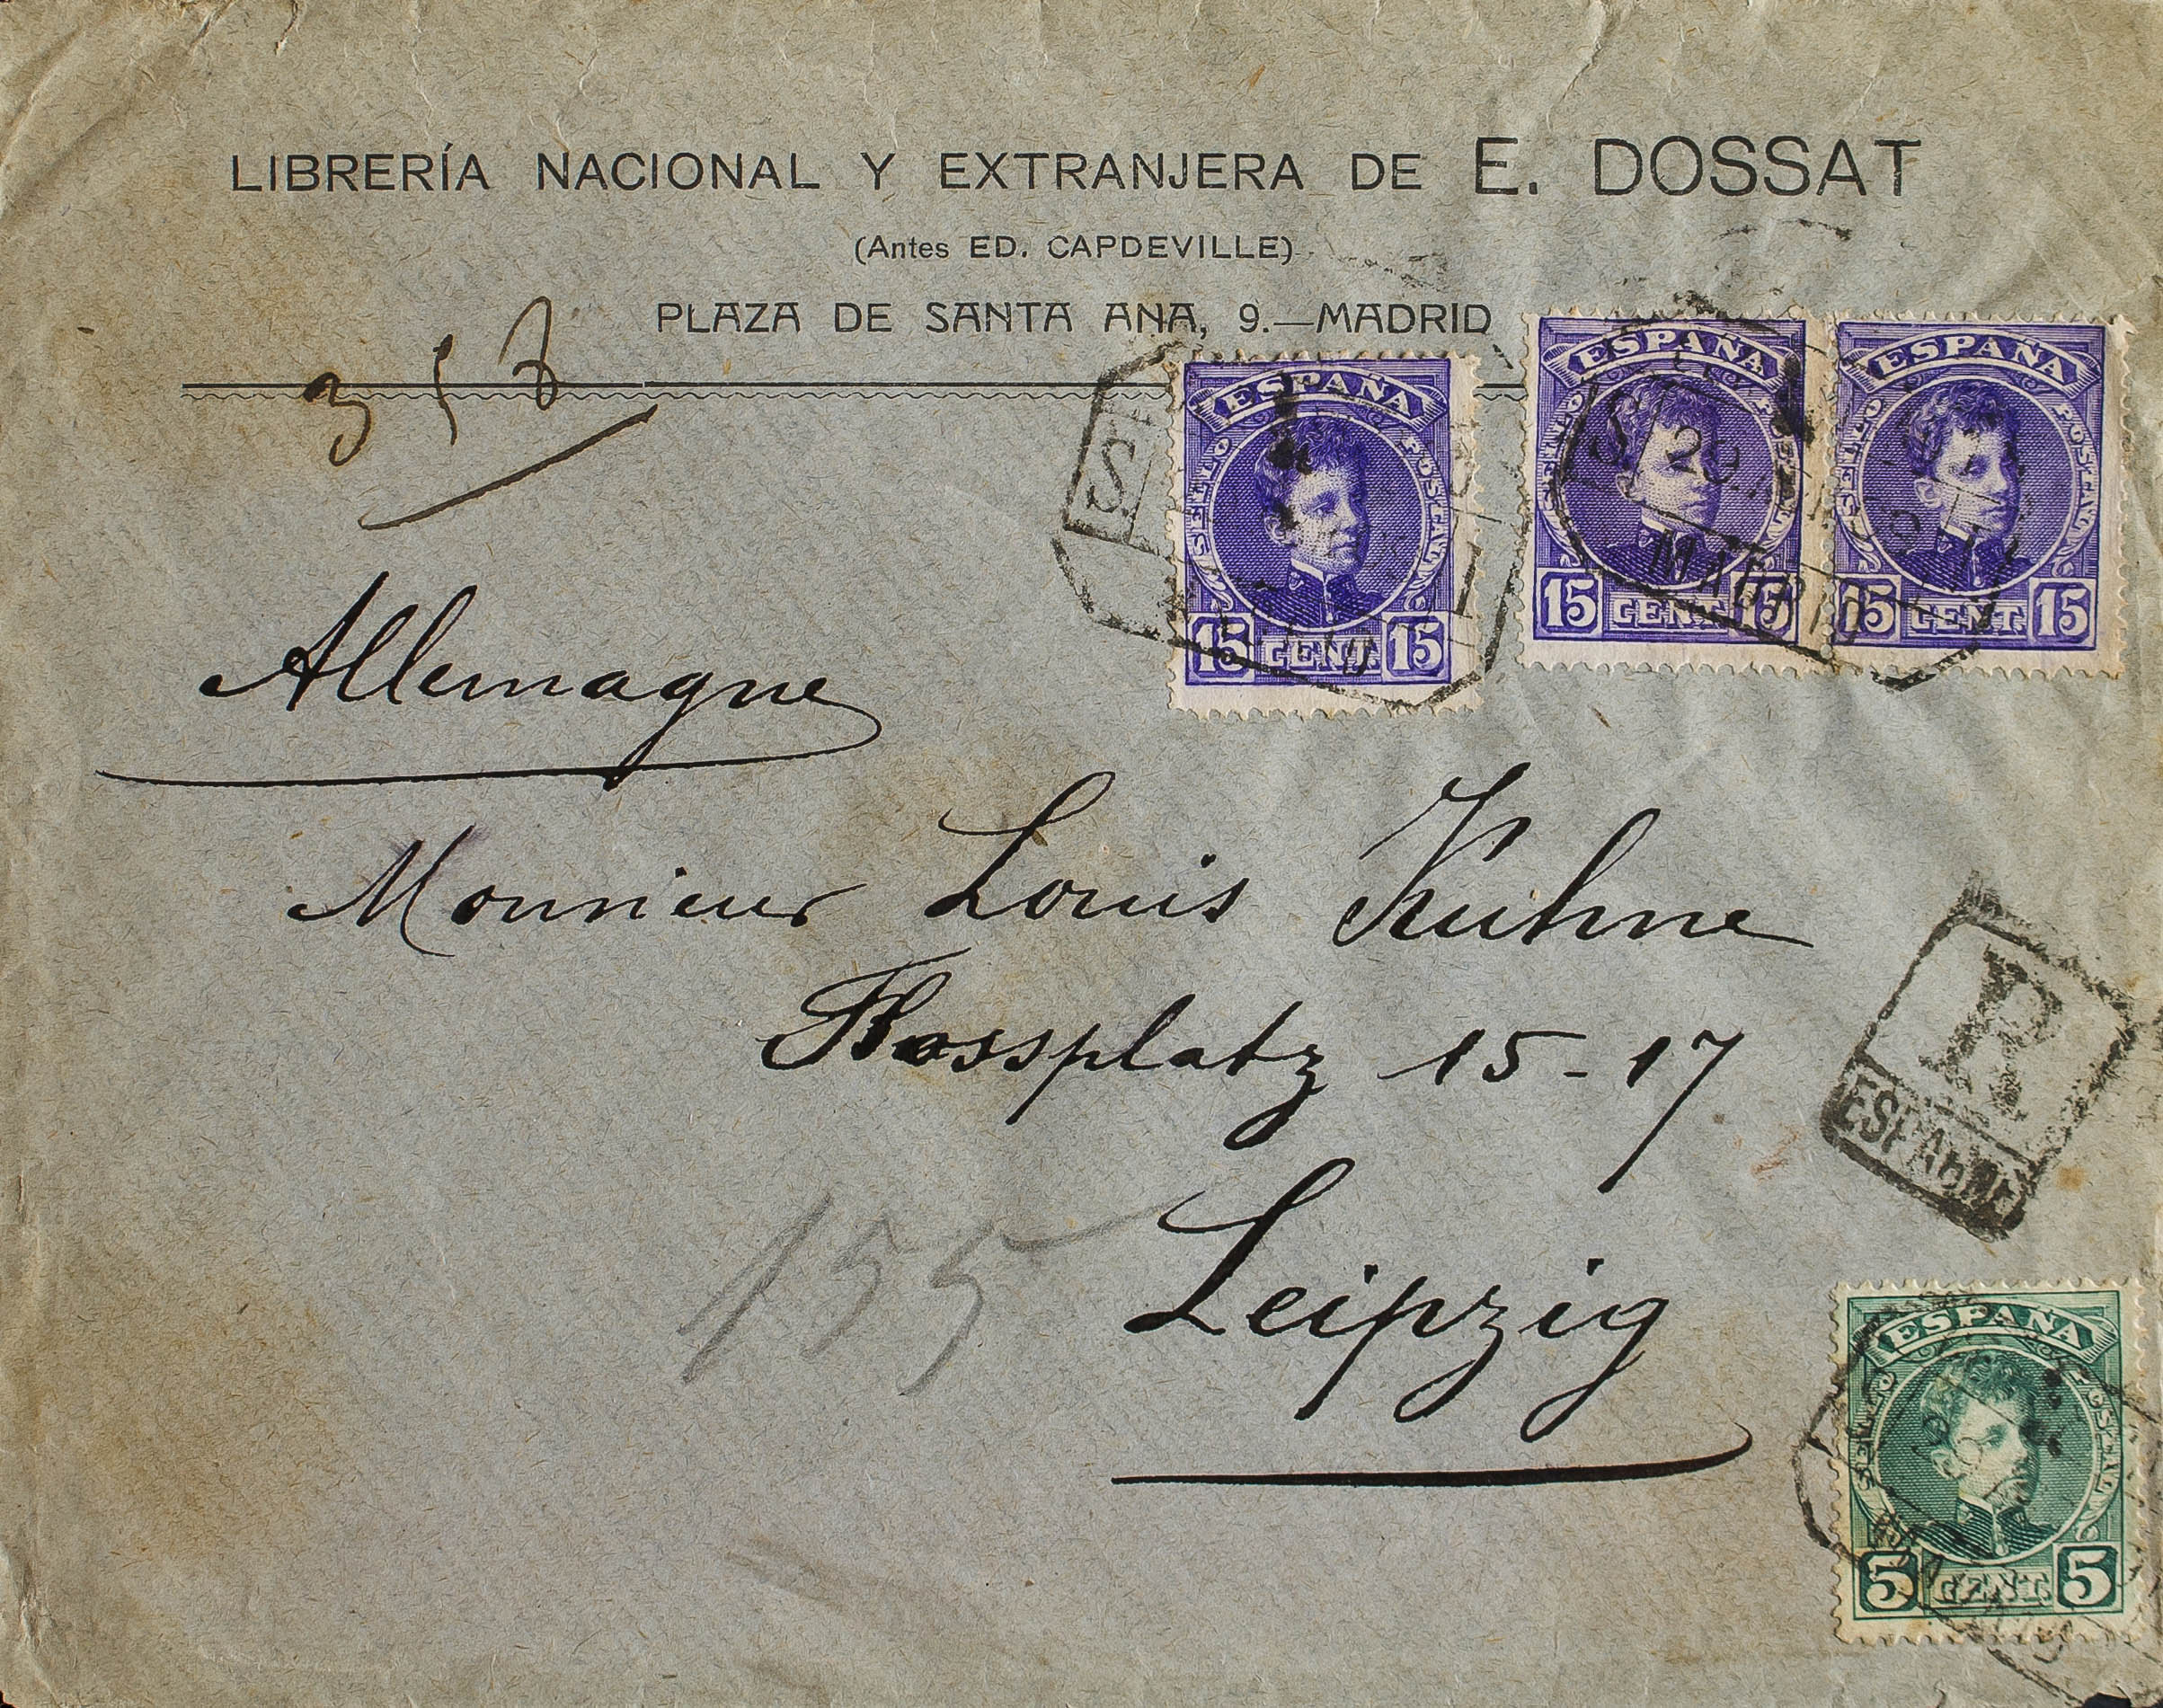 LIBRERÍA NACIONAL Y EXTRANJERA DE E. DOSSAT
(Antes ED. CAPDEVILLE)
PLAZA DE SANTA ANA, 9.—MADRID
ESPAÑA
SELLO POSTAL
15 CENT. 15
ESPAÑA
SELLO POSTAL
15 CENT. 15
ESPAÑA
SELLO POSTAL
15 CENT. 15
S.
S. 29
MADRID
Allemagne
Monsieur Louis Kuhne
Flossplatz 15-17
Leipzig
155
R
ESPAGNE
ESPAÑA
SELLO POSTAL
5 CENT. 5